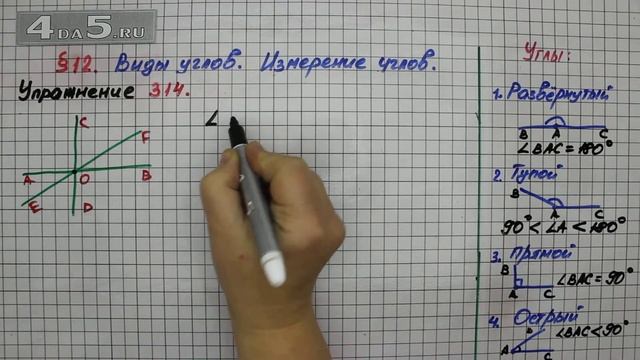 4DA5.RU
§12. Виды углов. Измерение углов.
Упражнение 314.
C
F
A
O
B
E
D
∠
Углы:
1. Развёрнутый
B A C
∠BAC = 180°
2. Тупой
B
A C
90° < ∠A < 180°
3. Прямой
B
∠BAC = 90°
A C
4. Острый
B
∠BAC < 90°
A C